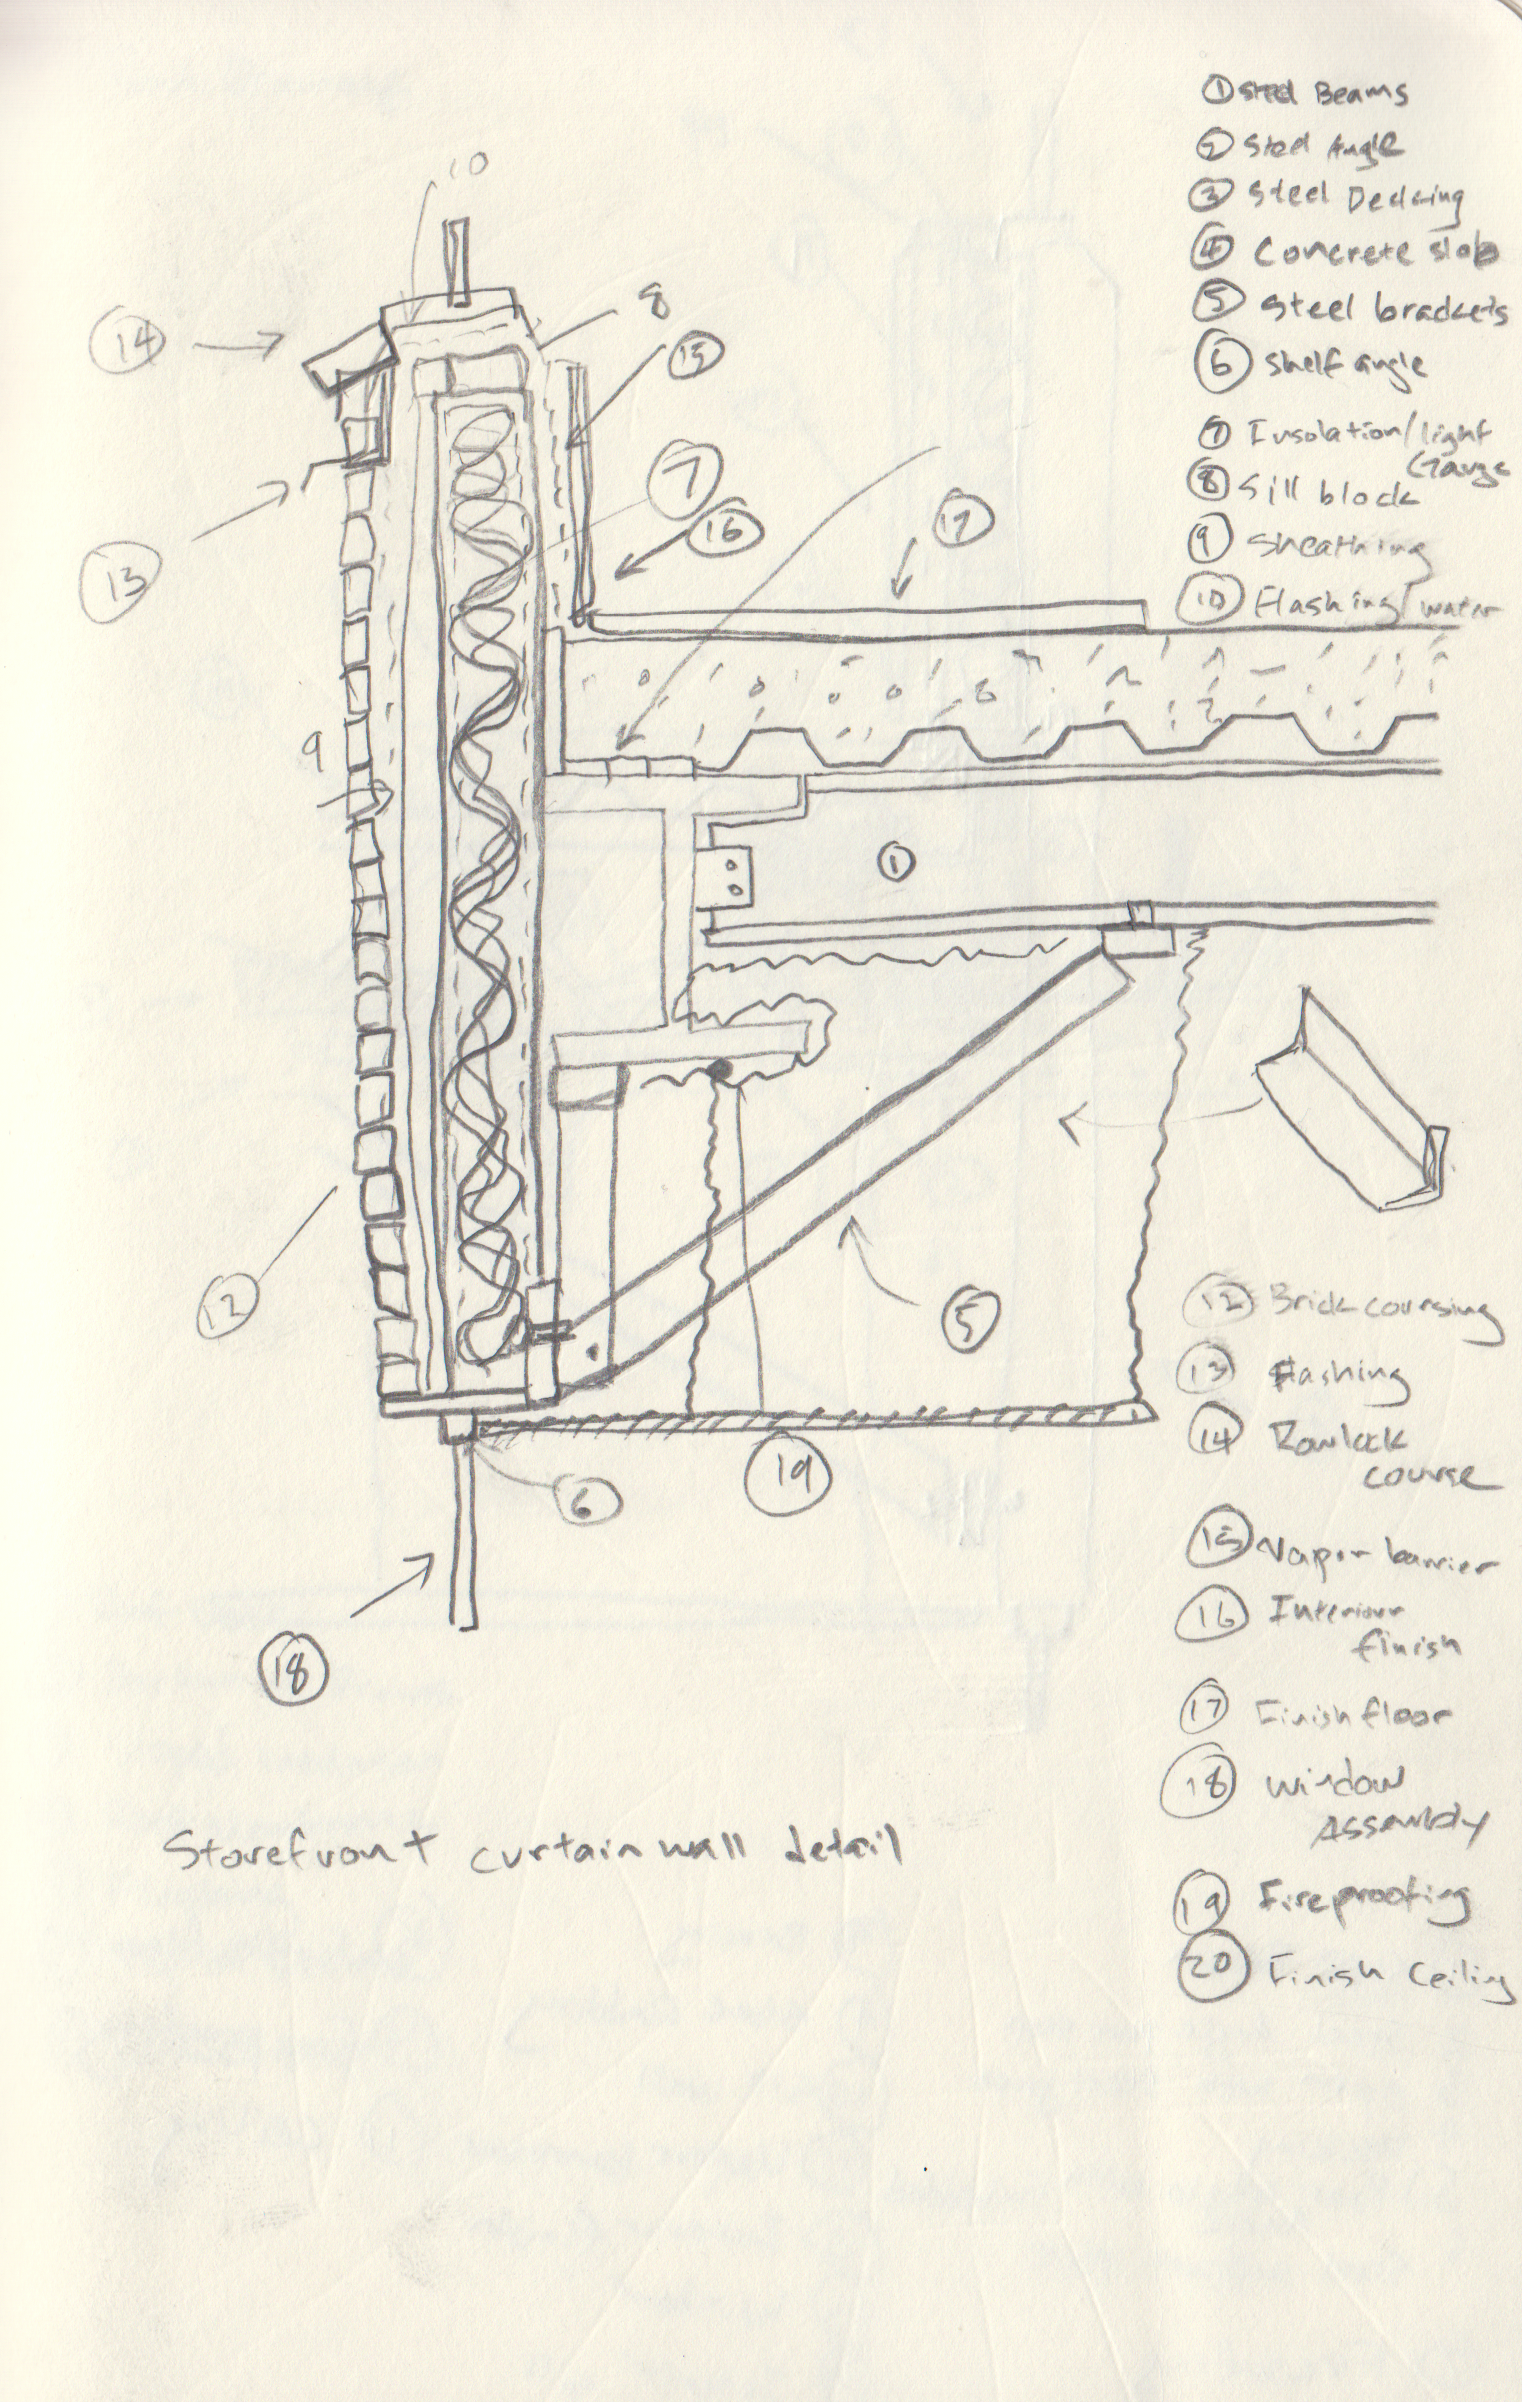 ① Steel Beams
② Steel Angle
③ Steel Decking
④ Concrete slab
⑤ Steel brackets
⑥ Shelf angle
⑦ Insolation/light
Gauge
⑧ Sill block
⑨ Sheathing
⑩ Flashing/water
10
14
8
15
7
16
17
13
9
1
12
5
6
19
18
⑫ Brick coursing
⑬ Flashing
⑭ Rowlock
course
⑮ Vapor barrier
⑯ Interiour
finish
⑰ Finish floor
⑱ Window
Assembly
⑲ Fireproofing
⑳ Finish Ceiling
Storefront curtain wall detail